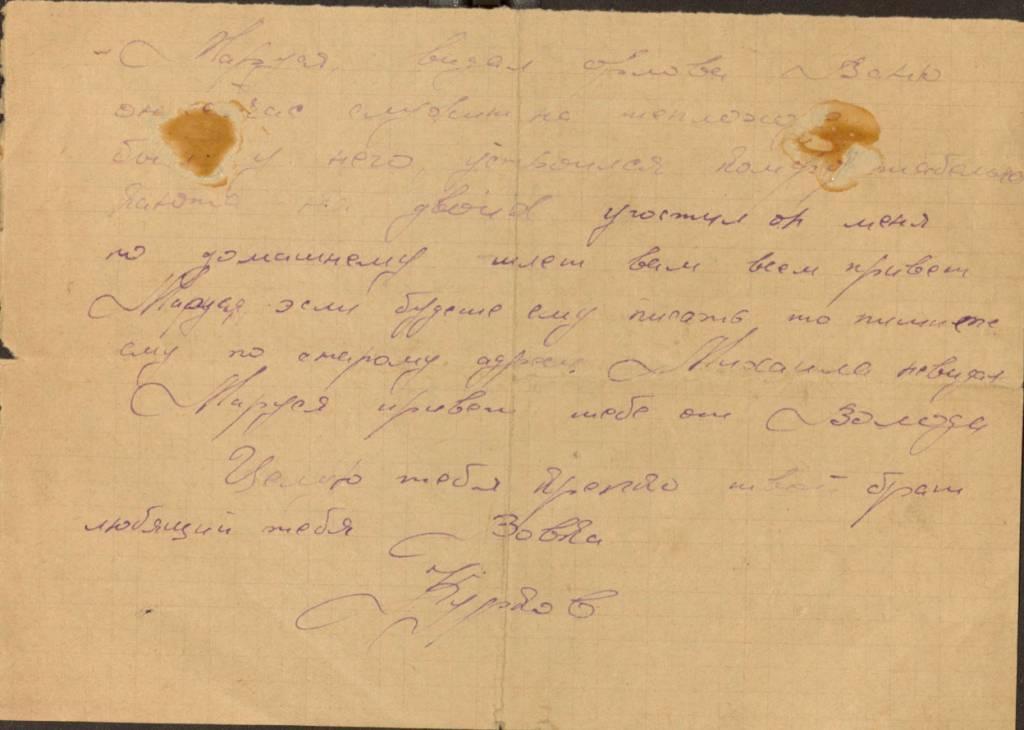 Маруся, видал орлова Ваню
он сейчас служит на теплоходе
был у него, устроился комфортабельно
каюта на двоих угостил он меня
по домашнему шлет вам всем привет
Маруся если будеш ему писать то пишите
ему по старому адресу. Михаила невидал
Маруся привет тебе от Володя
Целую тебя крепко твой брат
любящий тебя Вовка
Курков